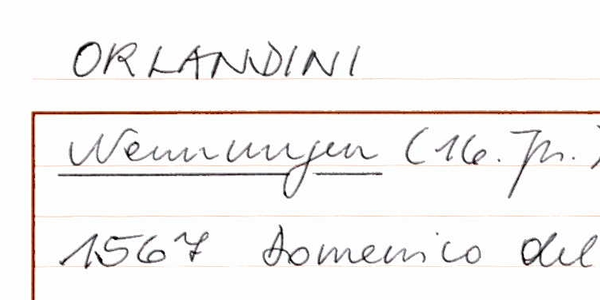 ORLANDINI
Nennungen (16. Jh.)
1567 Domenico del